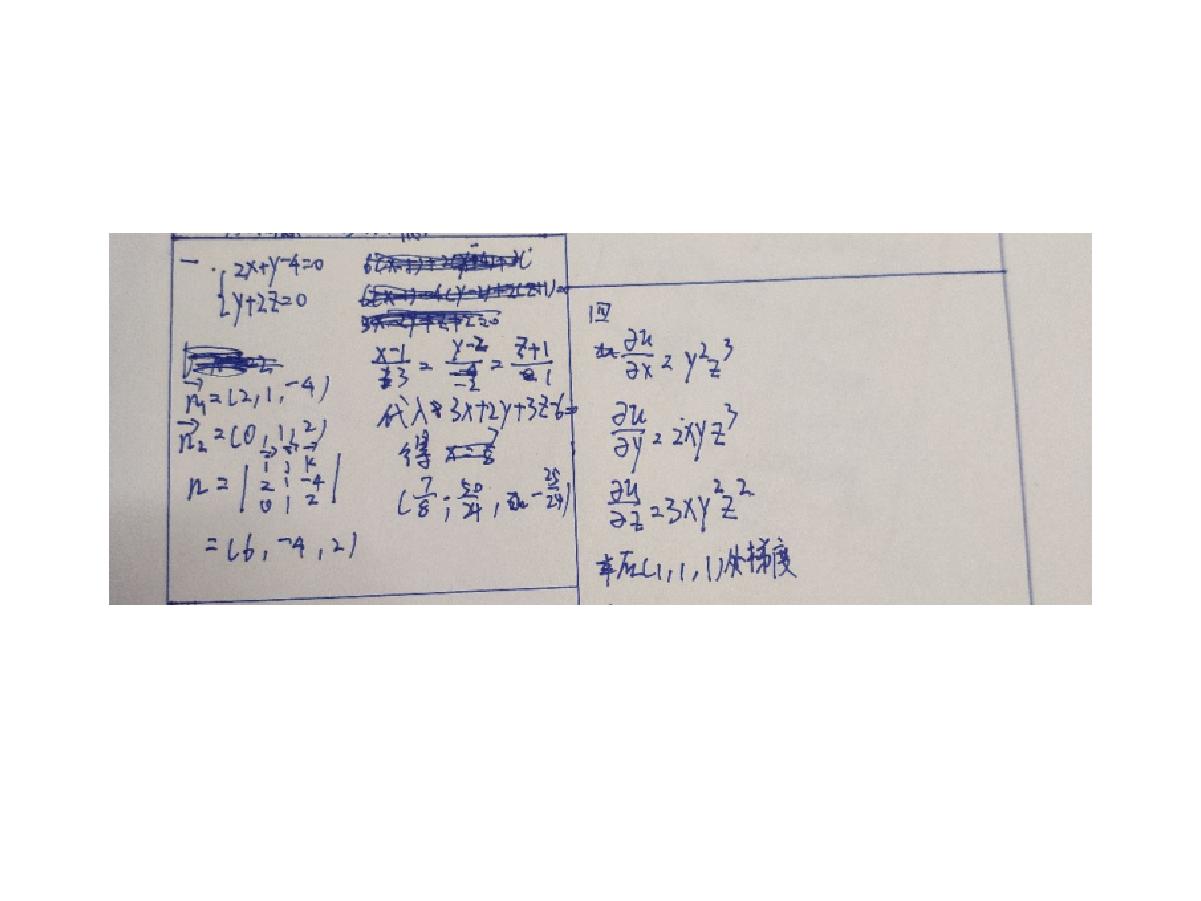 一.
2x+y-4=0
y+2z=0
n₁=(2,1,-4)
n₂=(0,1,2)
n=|i j k
2 1 -4
0 1 2|
=(6,-4,2)
(x-1)/3=(y-2)/-2=(z+1)/1
代入 3x+2y+3z-6=
得
(7/8, 50/24, -25/24)
四
∂u/∂x=y²z³
∂u/∂y=2xyz³
∂u/∂z=3xy²z²
(1,1,1)处梯度